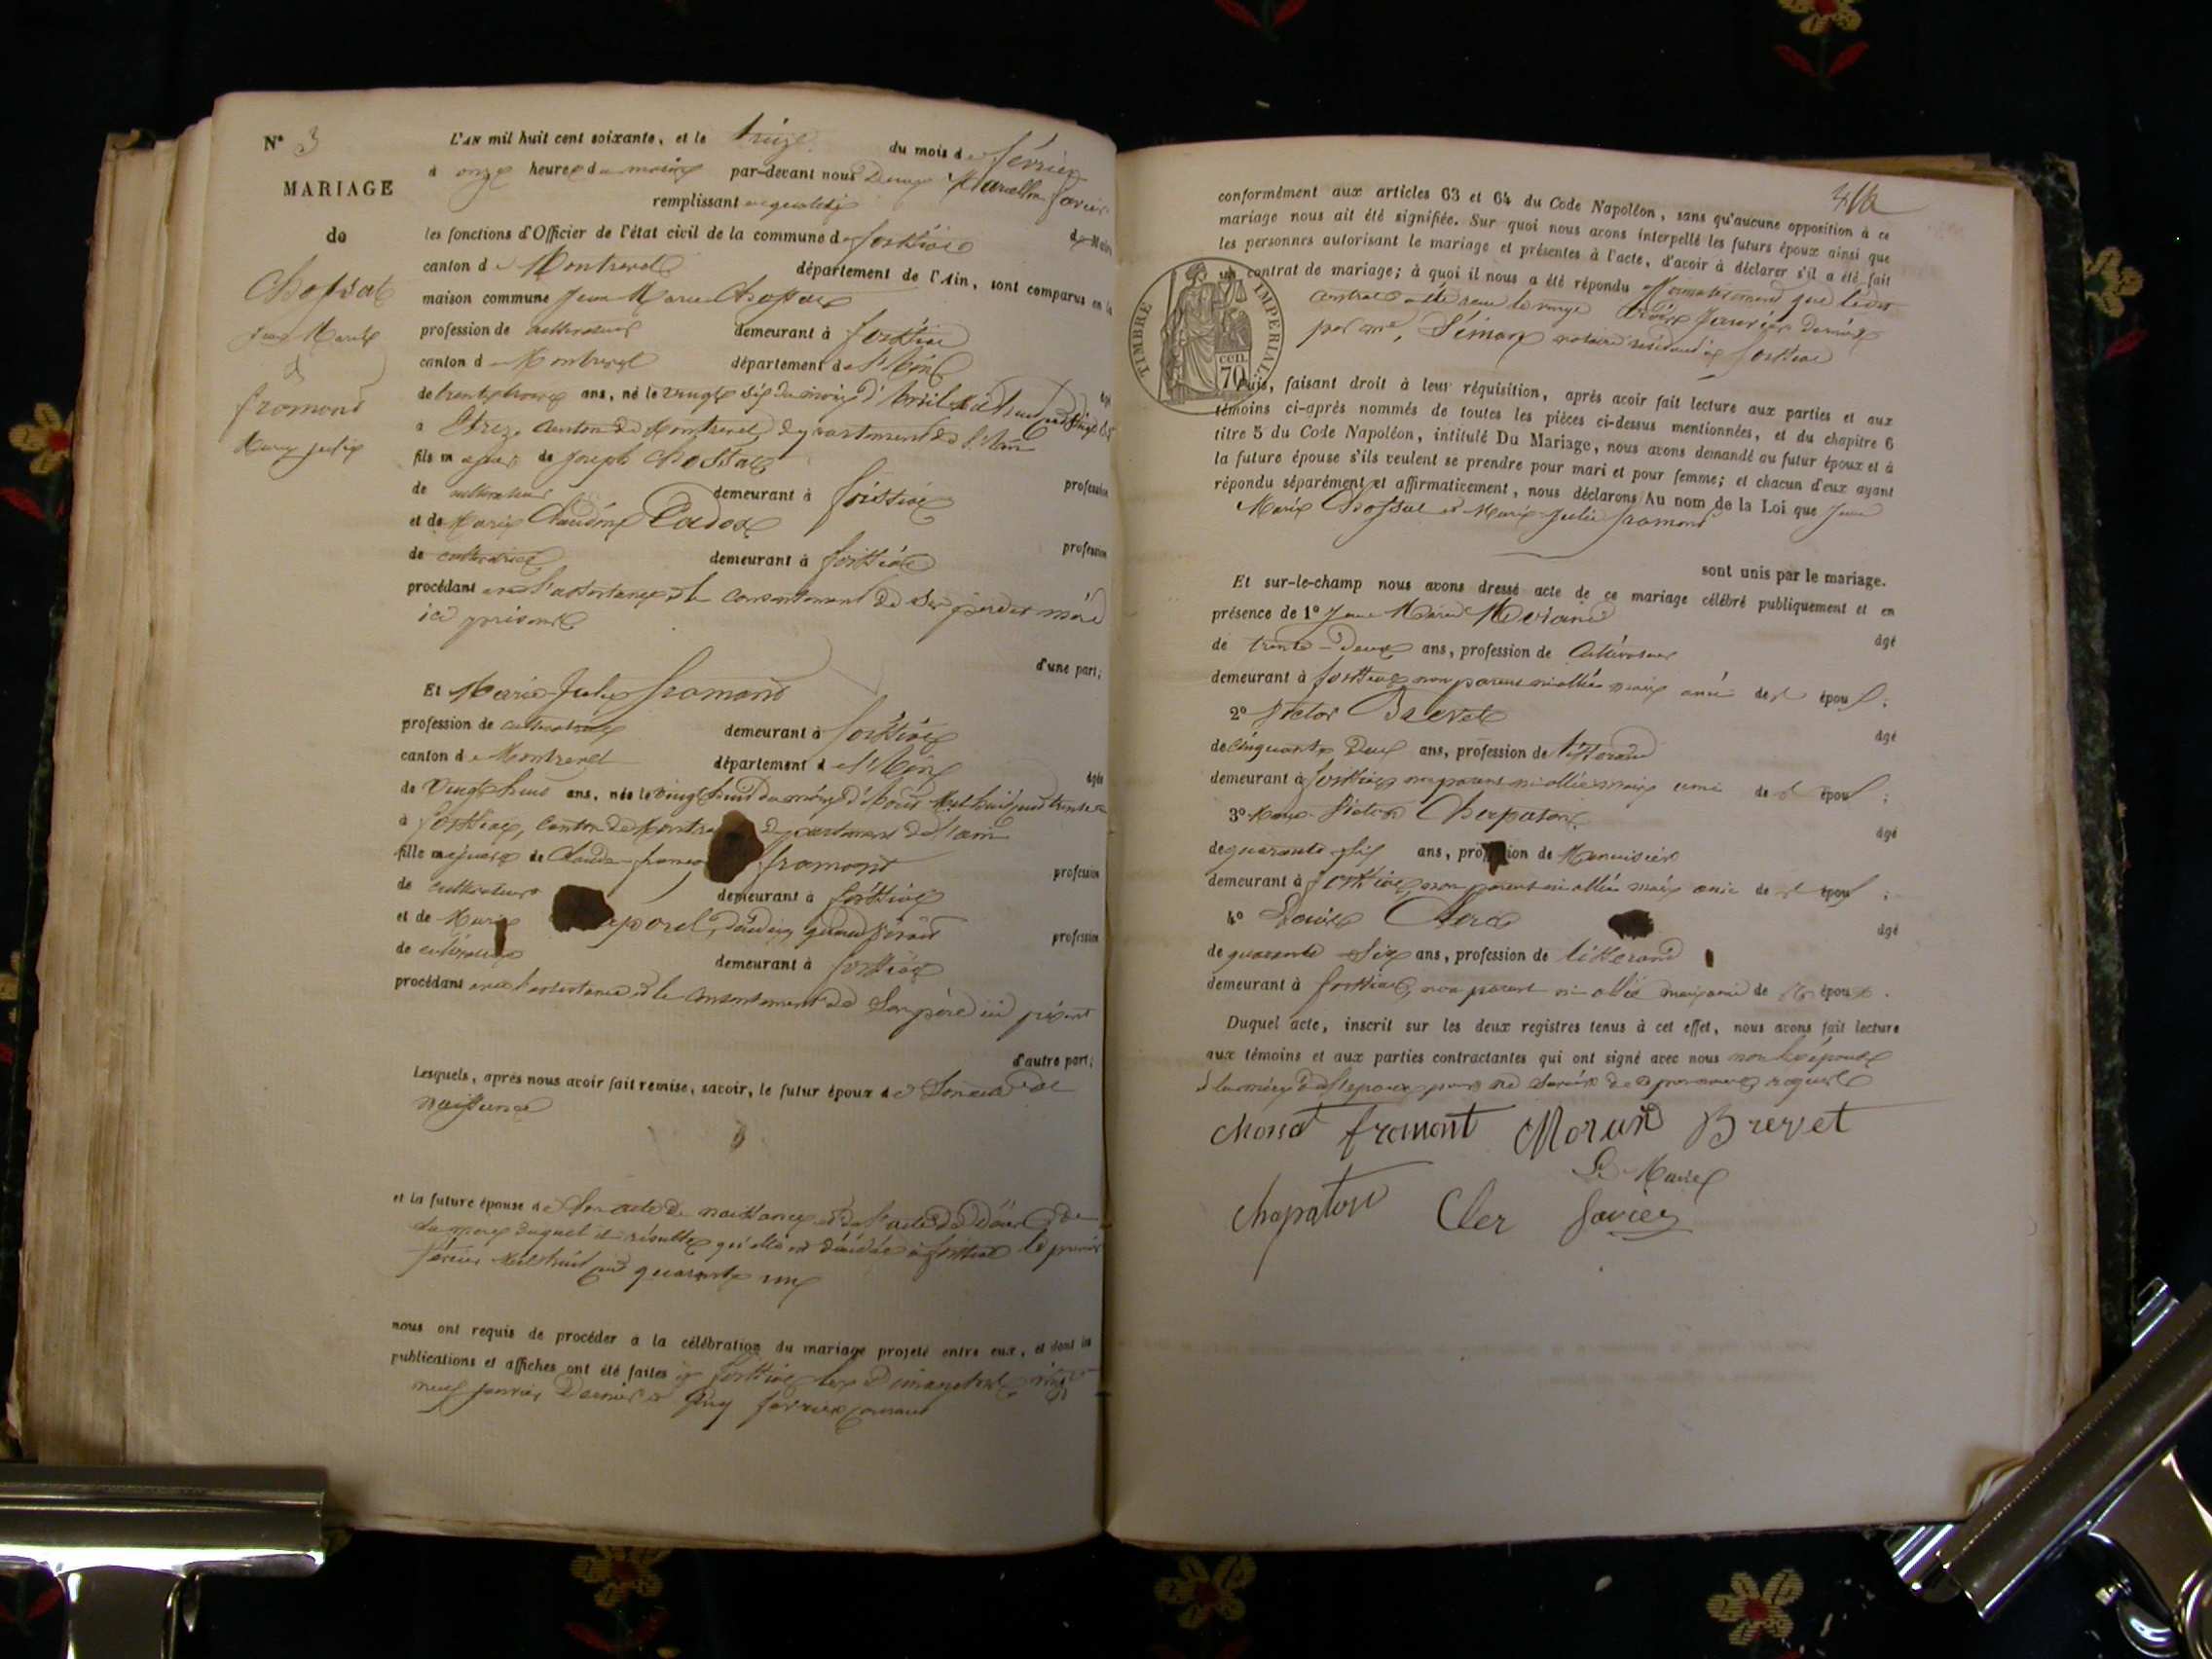 N° 3
MARIAGE
de
Chossat
Jean Marie
&
fromont
Marie julie
L'AN mil huit cent soixante, et le treize du mois de février
à onze heures du matin par-devant nous Marcellin favier
remplissant en qualité de Maire
les fonctions d'Officier de l'état civil de la commune de foissiat
canton de Montrevel département de l'Ain, sont comparus en la
maison commune Jean Marie Chossat
profession de cultivateur demeurant à foissiat
canton de Montrevel département de l'Ain âgé
de trente ans, né le vingt six du mois d'Avril mil huit cent vingt
à Etrez, canton de Montrevel département de l'Ain
fils majeur de joseph Chossat profession
de cultivateur demeurant à foissiat
et de Marie Claudine profession
de cultivatrice demeurant à foissiat
procédant avec l'assistance et le consentement de ses père et mère
ici présents
d'une part;
Et Marie-Julie fromont
profession de cultivatrice demeurant à foissiat
canton de Montrevel département de l'Ain âgée
de vingt huit ans, née le vingt huit du mois d'Août mil huit cent trente
à foissiat, canton de département de l'ain
fille majeure de Claude françois fromont profession
de cultivateur demeurant à foissiat
et de Marie décédée, quand vivait profession
de cultivatrice demeurant à foissiat
procédant avec l'assistance et le consentement de son père ici présent
d'autre part;
Lesquels, après nous avoir fait remise, savoir, le futur époux de son acte de
naissance
et la future épouse de son acte de naissance et de l'acte de décès de
sa mère duquel il résulte qu'elle est décédée à foissiat le premier
février mil huit cent quarante une
nous ont requis de procéder à la célébration du mariage projeté entre eux, et dont les
publications et affiches ont été faites à foissiat les Dimanches vingt
neuf janvier dernier et cinq février courant
conformément aux articles 63 et 64 du Code Napoléon, sans qu'aucune opposition à ce
mariage nous ait été signifiée. Sur quoi nous avons interpellé les futurs époux ainsi que
les personnes autorisant le mariage et présentes à l'acte, d'avoir à déclarer s'il a été fait
un contrat de mariage; à quoi il nous a été répondu affirmativement que ledit
contrat a été reçu le janvier dernier
par me, notaire résidant à foissiat
TIMBRE IMPERIAL
70 CEN.
Puis, faisant droit à leur réquisition, après avoir fait lecture aux parties et aux
témoins ci-après nommés de toutes les pièces ci-dessus mentionnées, et du chapitre 6
titre 5 du Code Napoléon, intitulé Du Mariage, nous avons demandé au futur époux et à
la future épouse s'ils veulent se prendre pour mari et pour femme; et chacun d'eux ayant
répondu séparément et affirmativement, nous déclarons Au nom de la Loi que Jean
Marie Chossat et Marie-Julie fromont
sont unis par le mariage.
Et sur-le-champ nous avons dressé acte de ce mariage célébré publiquement et en
présence de 1° Jean Marie âgé
de trente-deux ans, profession de Cultivateur
demeurant à foissiat, non parent ni allié mais ami de l'époux;
2° Victor Brevet âgé
de cinquante deux ans, profession de tisserand
demeurant à foissiat, non parent ni allié mais ami de l'époux;
3° Chapaton âgé
de quarante six ans, profession de Menuisier
demeurant à foissiat, non parent ni allié mais ami de l'époux;
4° Clerc âgé
de quarante six ans, profession de tisserand
demeurant à foissiat, non parent ni allié mais ami de l'époux.
Duquel acte, inscrit sur les deux registres tenus à cet effet, nous avons fait lecture
aux témoins et aux parties contractantes qui ont signé avec nous non l'épouse
et la mère de l'époux pour ne savoir de ce requises
chossat fromont Morand Brevet
Le Maire
chapaton Cler favier